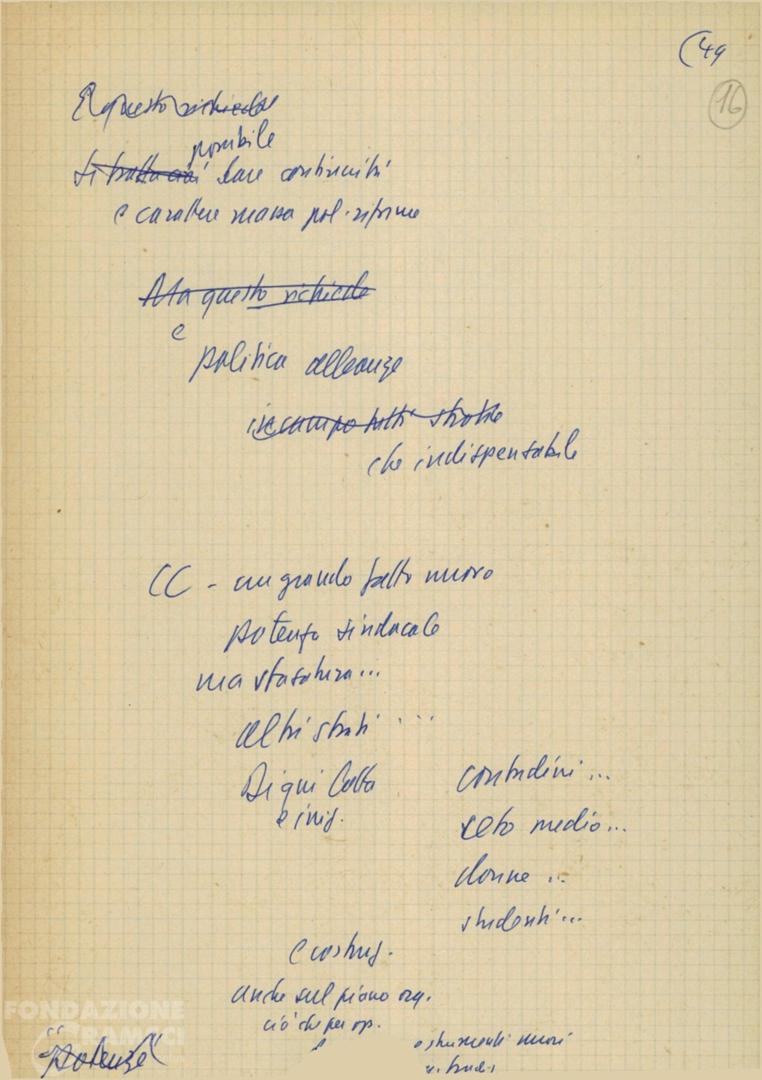 (49
16
E questo richiede
possibile
Si tratta così dare continuità
e carattere massa pol. riforme
Ma questo richiede
e
politica alleanze
in campo tutti strati
che indispensabile
CC - un grande fatto nuovo
potenza sindacale
ma sfasatura...
altri strati ...
Di qui lotta
e iniz.
contadini...
ceto medio...
donne ...
studenti...
e costruz.
anche sul piano org.
ciò che per op.
e
e strumenti nuovi
FONDAZIONE
GRAMSCI
"potenze"